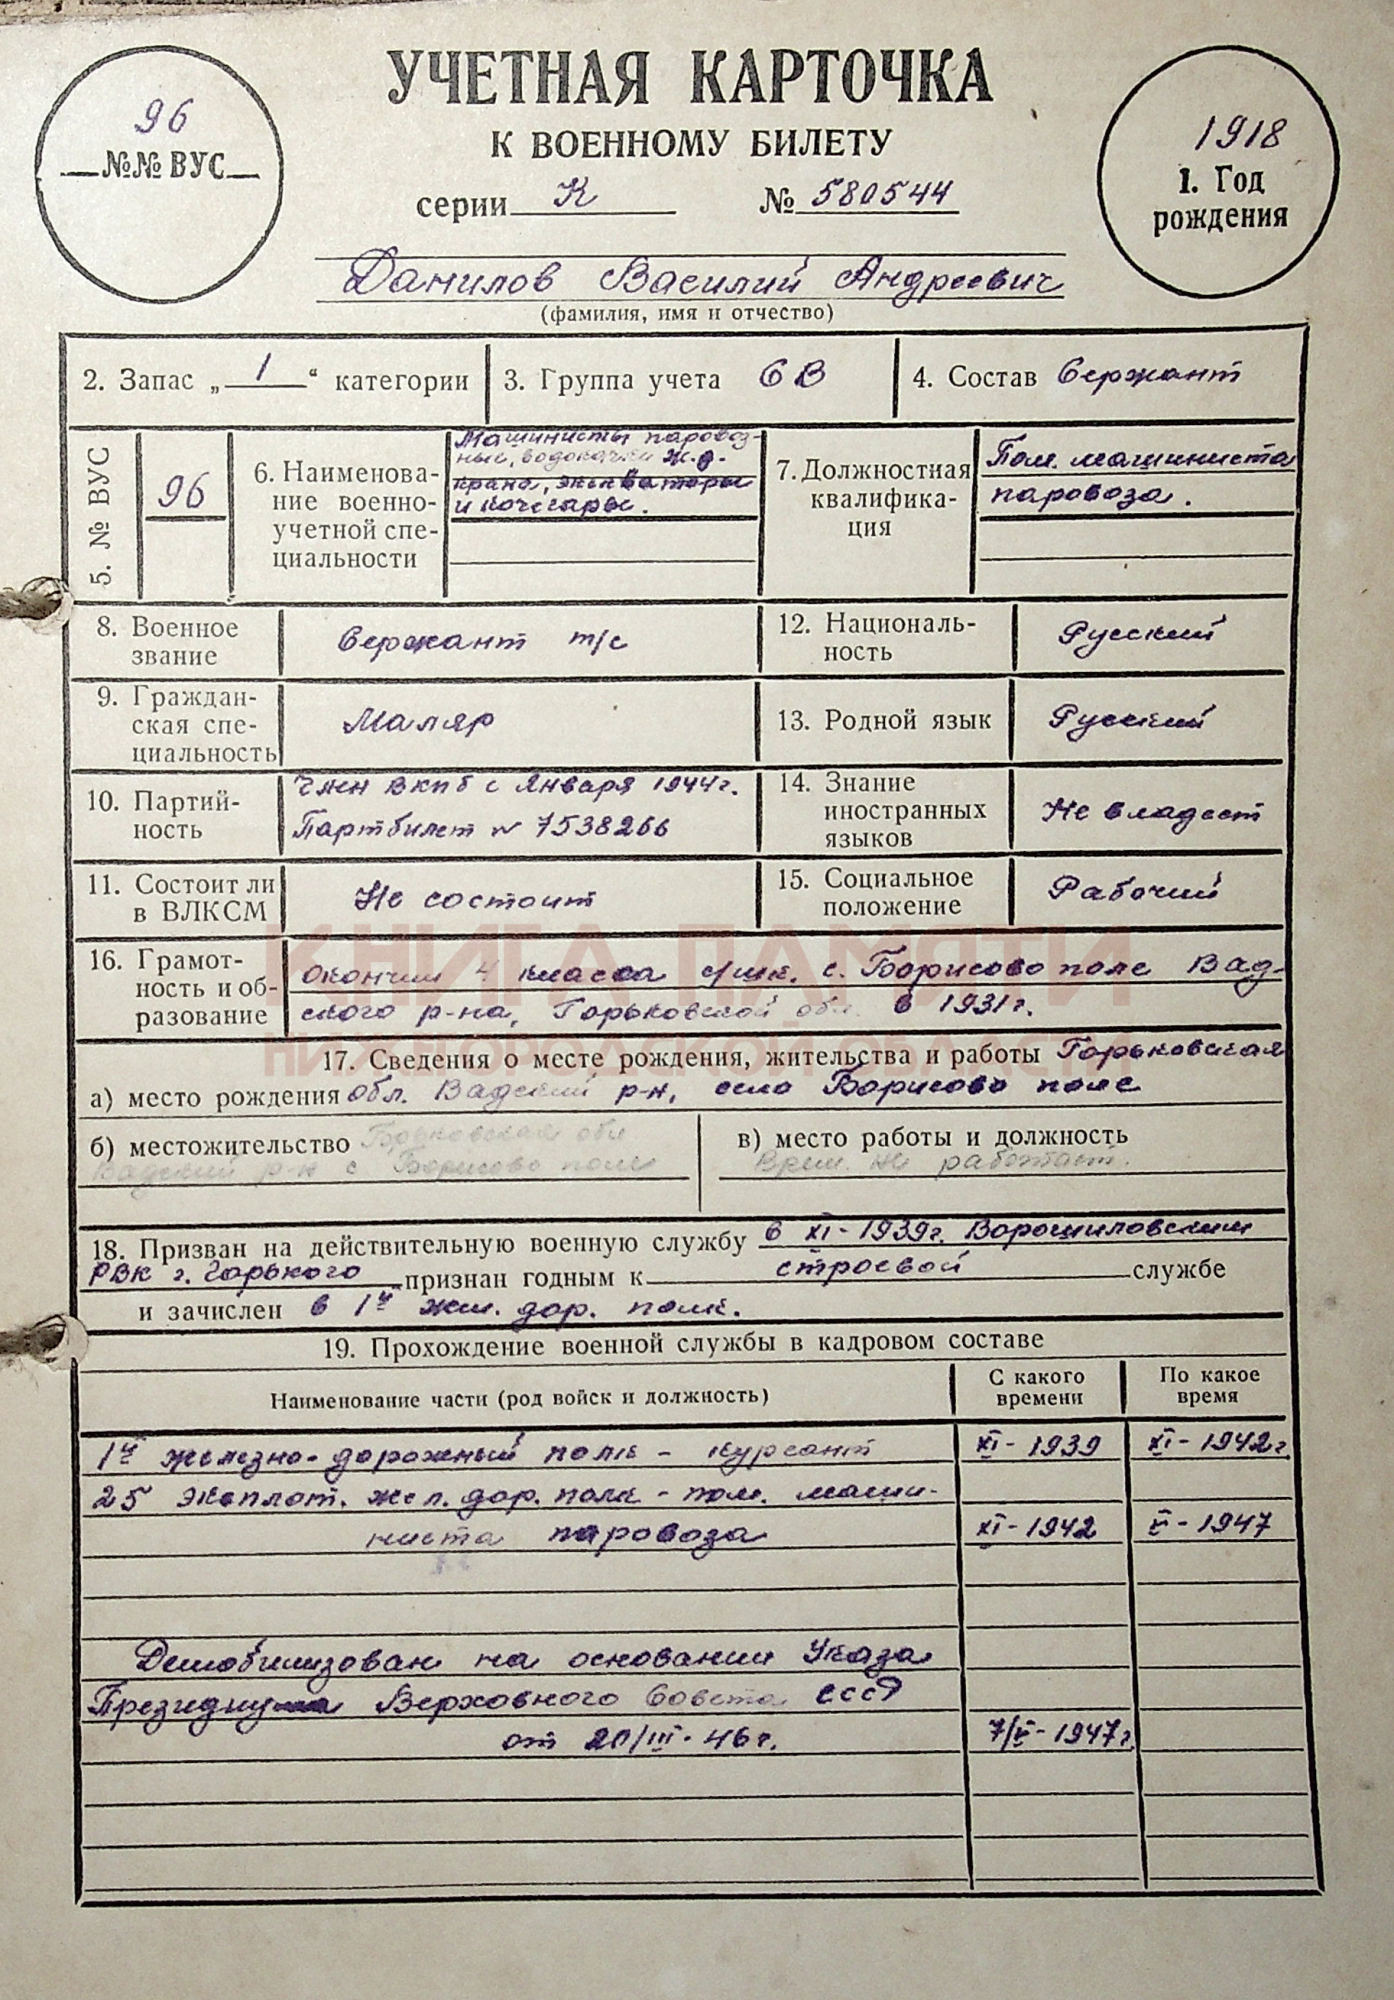 УЧЕТНАЯ КАРТОЧКА
К ВОЕННОМУ БИЛЕТУ
96
№№ ВУС
серии К № 580544
1918
1. Год
рождения
Данилов Василий Андреевич
(фамилия, имя и отчество)
2. Запас „ 1 “ категории
3. Группа учета СВ
4. Состав Сержант
5. № ВУС
96
6. Наименова-
ние военно-
учетной спе-
циальности
Машинисты паровоз-
ные, водокачки ж.д.
крана, экскваторы
и кочегары.
7. Должностная
квалифика-
ция
Пом. машиниста
паровоза.
8. Военное
звание
Сержант т/с
9. Граждан-
ская спе-
циальность
Маляр
10. Партий-
ность
Член ВКПб с Января 1944г.
Партбилет № 7538266
11. Состоит ли
в ВЛКСМ
Не состоит
12. Националь-
ность
Русский
13. Родной язык
Русский
14. Знание
иностранных
языков
Не владеет
15. Социальное
положение
Рабочий
16. Грамот-
ность и об-
разование
окончил 4 класса с/шк. с. Борисово поле Вад-
ского р-на, Горьковской обл. в 1931г.
КНИГА ПАМЯТИ
НИЖЕГОРОДСКОЙ ОБЛАСТИ
17. Сведения о месте рождения, жительства и работы Горьковская
а) место рождения обл. Вадский р-н, село Борисово поле
б) местожительство Горьковская обл
Вадский р-н с. Борисово поле
в) место работы и должность
Врем. не работает.
18. Призван на действительную военную службу в XI-1939г. Ворошиловским
РВК г. Горького признан годным к строевой службе
и зачислен в 1й жел. дор. полк.
19. Прохождение военной службы в кадровом составе
Наименование части (род войск и должность)
С какого
времени
По какое
время
1й железно-дорожный полк - курсант XI-1939 XI-1942г.
25 Эксплот. жел. дор. полк - пом. маши-
ниста паровоза XI-1942 V-1947
Демобилизован на основании Указа
Президиума Верховного Совета СССР
от 20/III-46г. 7/V-1947г.